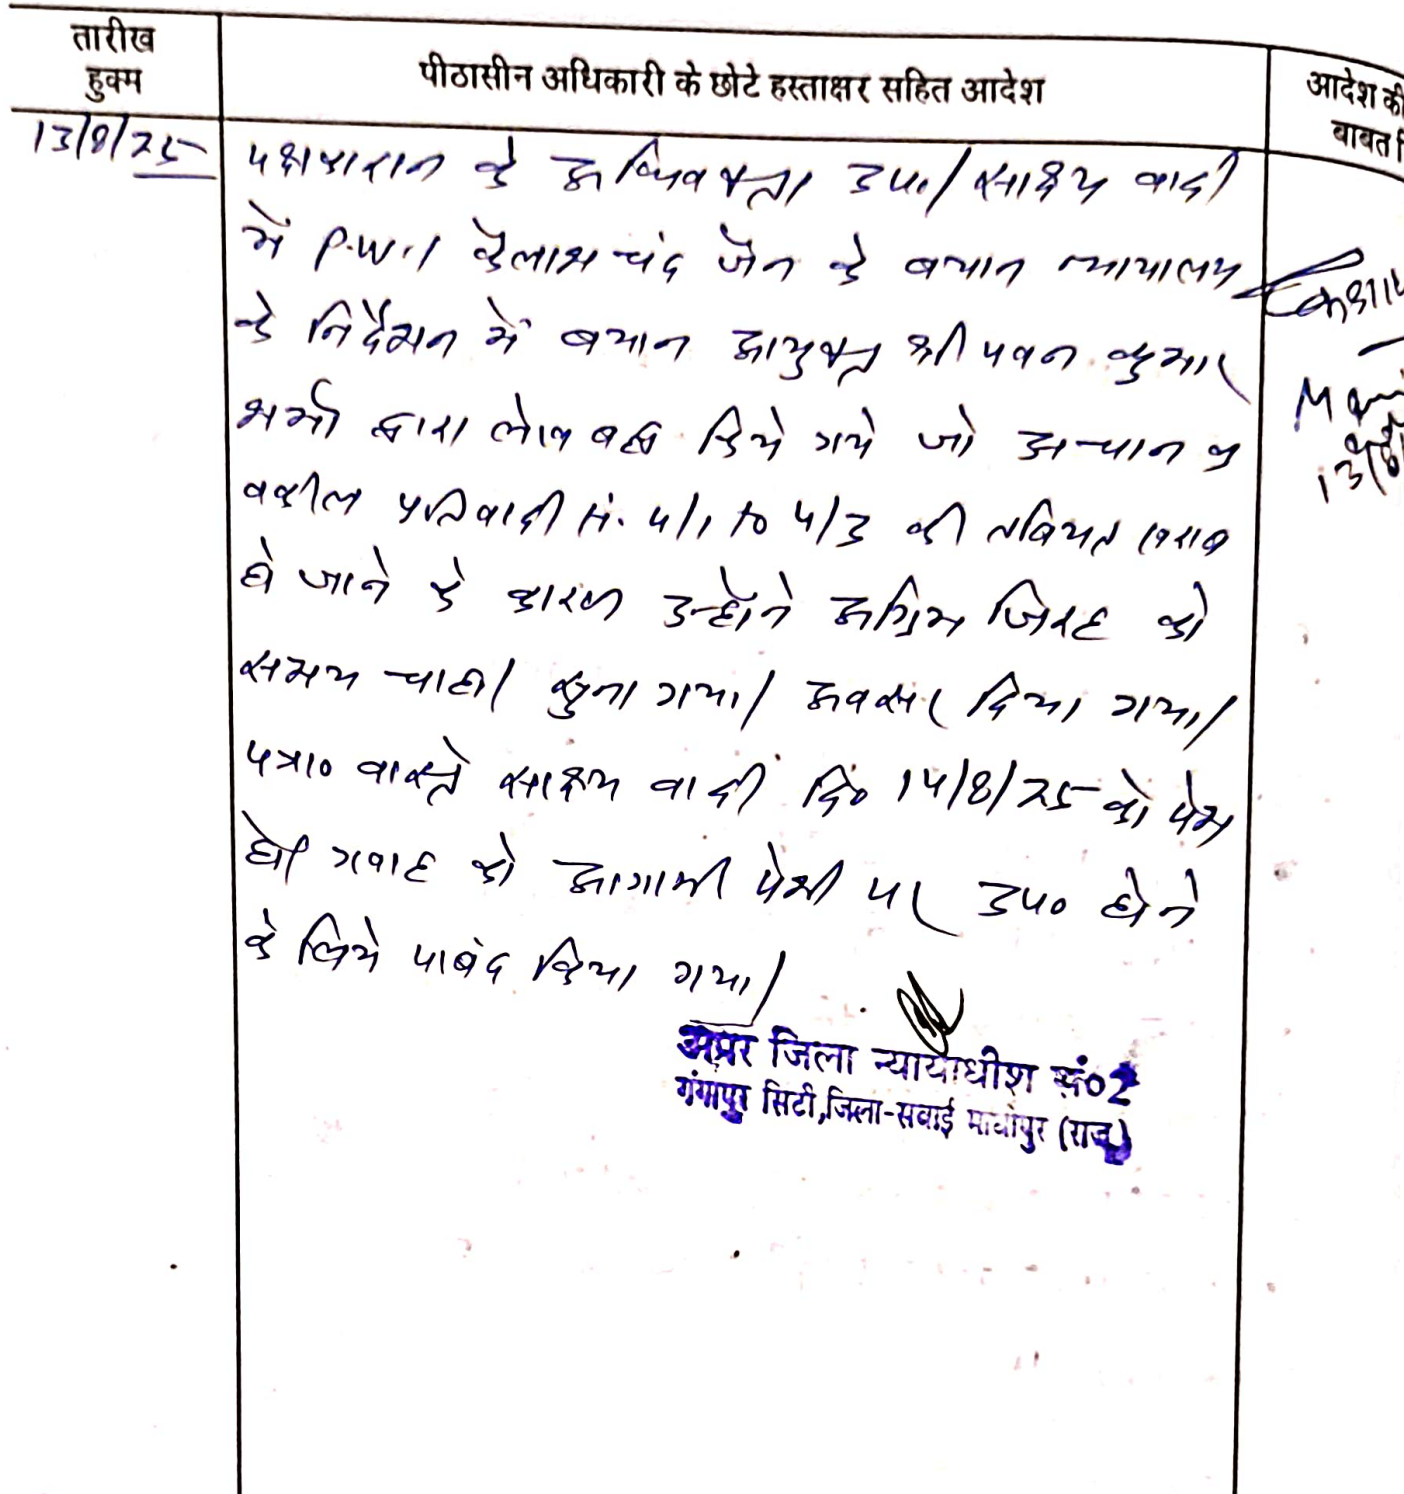 तारीख
हुक्म
पीठासीन अधिकारी के छोटे हस्ताक्षर सहित आदेश
आदेश की
बाबत
13/8/25
पक्षकारान के अधिवक्ता उप./ साक्ष्य वादी
में P.W.1 कैलाश चंद जैन के बयान न्यायालय
के निर्देशन में बयान आयुक्त श्री पवन कुमार
शर्मा द्वारा लेखबद्ध किये गये जो अचानक
वकील प्रतिवादी सं. 4/1 to 4/3 की तबियत खराब
हो जाने के कारण उन्होंने अग्रिम जिरह को
समय चाहा। सुना गया। अवसर दिया गया।
पत्रा० वास्ते साक्ष्य वादी दि० 14/8/25 को पेश
हो। गवाह को आगामी पेशी पर उप० होने
के लिये पाबंद किया गया।
अपर जिला न्यायाधीश सं०2
गंगापुर सिटी,जिला-सवाई माधोपुर (राज.)